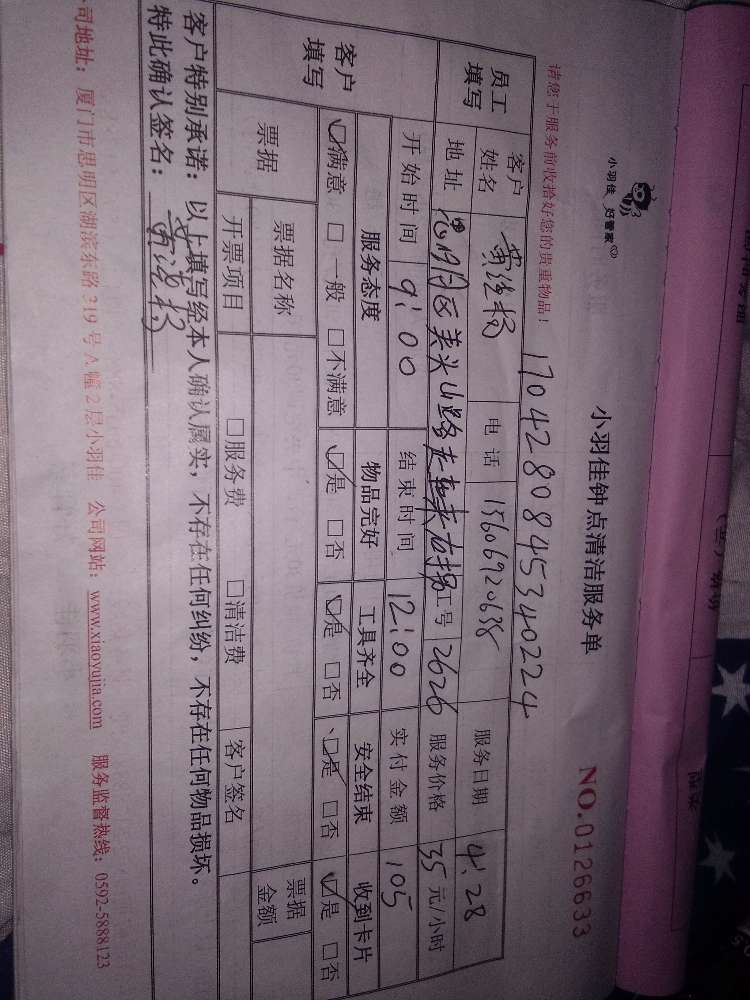 小羽佳 好管家
小羽佳钟点清洁服务单
NO.0126633
请您于服务前收拾好您的贵重物品！
17042808453402 24
员工填写 客户姓名 电话 15606920638 服务日期 4.28
地址 思明区美头山路 右拐 工号 2626 服务价格 35元/小时
客户填写 开始时间 9:00 结束时间 12:00 实付金额 105
服务态度 物品完好 工具齐全 安全结束 收到卡片
☑满意 □一般 □不满意 ☑是 □否 ☑是 □否 ☑是 □否 ☑是 □否
票据 票据名称 票据金额
开票项目 □服务费 □清洁费 客户签名
客户特别承诺：以上填写经本人确认属实，不存在任何纠纷，不存在任何物品损坏。
特此确认签名：
司地址：厦门市思明区湖滨东路319号A幢2层小羽佳 公司网站：www.xiaoyujia.com 服务监督热线：0592-5888123